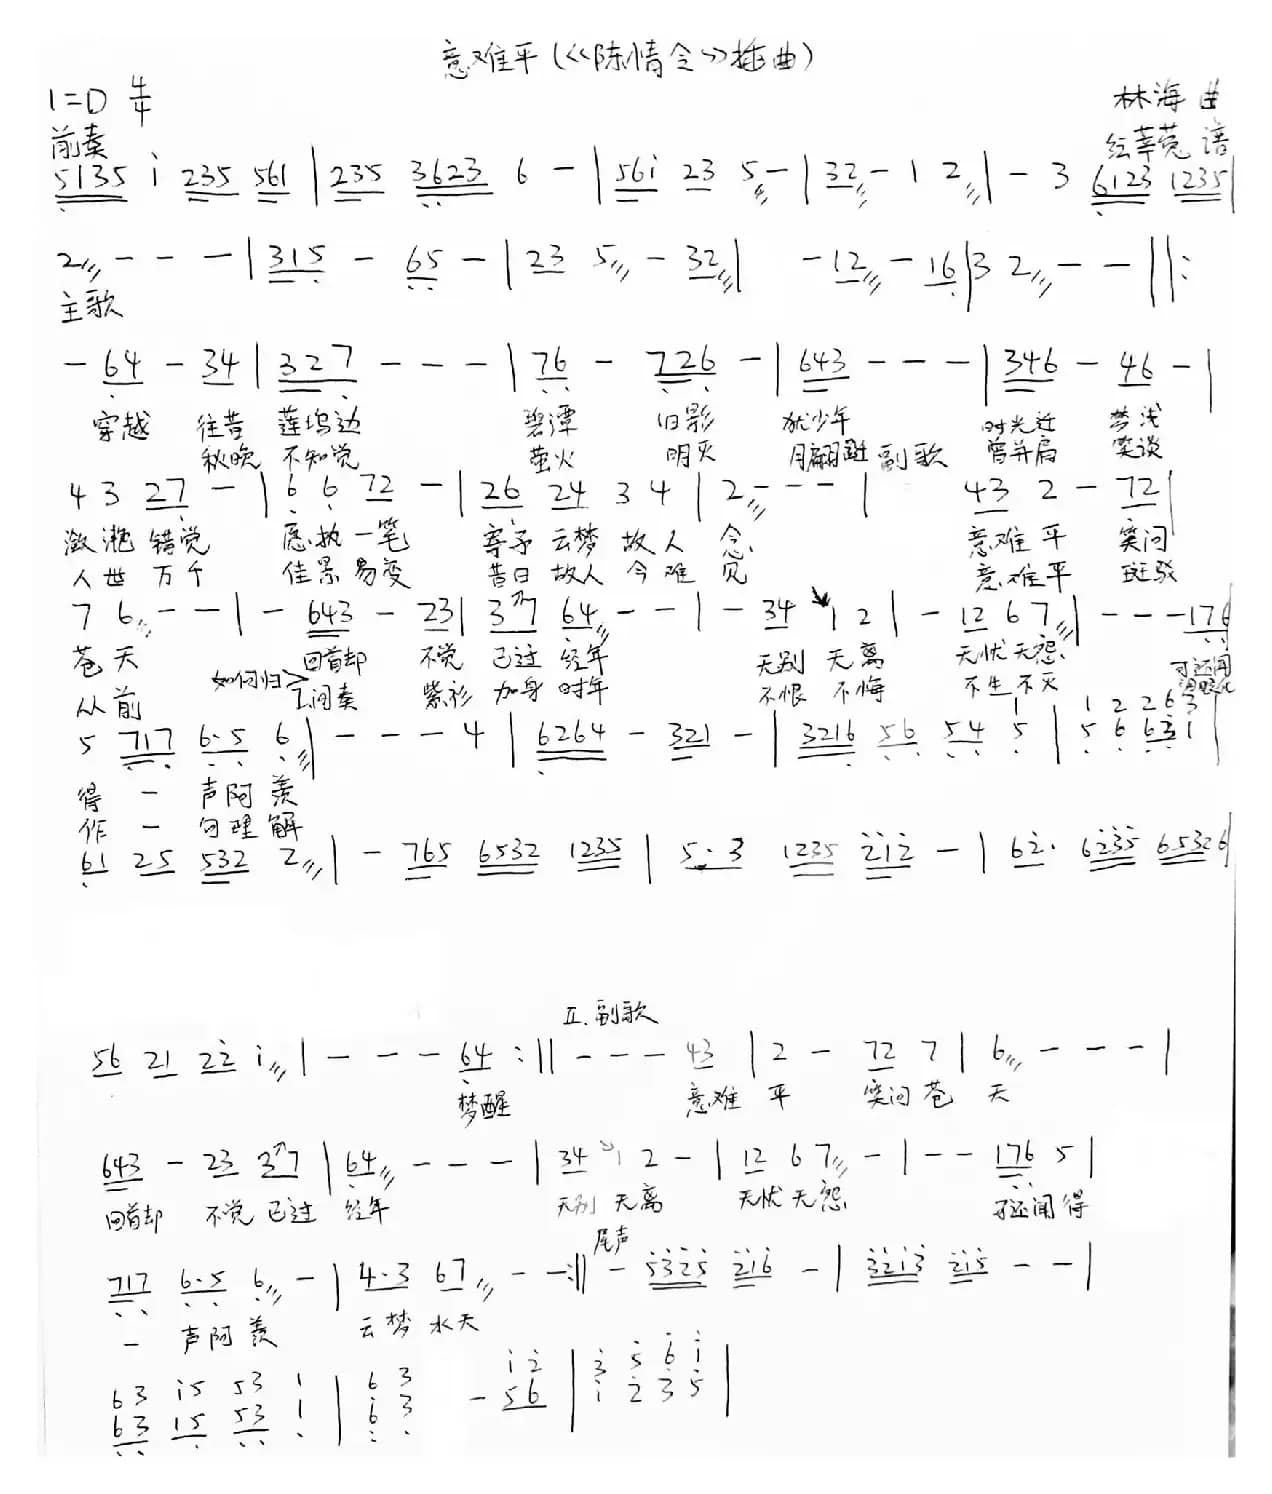 意难平(《陈情令》插曲)
1=D 4/4
林海 曲
绘莘莞 谱
前奏
5135 i 235 561 | 235 3623 6 - | 56i 23 5 - | 32 - 1 2 | - 3 6123 1235 |
2 - - - | 315 - 65 - | 23 5 - 32 | - 12 - 16 | 3 2 - - ||:
主歌
- 64 - 34 | 327 - - - | 76 - 726 - | 643 - - - | 346 - 46 - |
穿越 往昔 莲坞边 碧潭 旧影 犹少年 时光迁 梦浅
秋晚 不知觉 萤火 明灭 月翩跹 曾并肩 笑谈
副歌
4 3 27 - | 6 6 72 - | 26 24 3 4 | 2 - - - | 43 2 - 72 |
潋滟 错觉 愿执一笔 寄予 云梦 故人 念 意难平 笑问
人世 万千 佳景易变 昔日 故人 今难 见 意难平 斑驳
7 6 - - | - 643 - 23 | 3 7 64 - - | - 34 1 2 | - 12 6 7 | - - - 176
苍天 回首却 不觉 已过 经年 无别 无离 无忧无怨 可还闻
从前 如何归> 紫衫 加身 时年 不恨 不悔 不生不灭
I.间奏
1 1 2 26 3
5 717 6·5 6 | - - - 4 | 6264 - 321 - | 3216 56 54 5 | 5 6 63 1 |
得 一 声阿 羡
作 一 句理 解
61 25 532 2 | - 765 6532 1235 | 5·3 1235 2i2 - | 62· 6235 65326 |
II.副歌
56 21 22 i | - - - 64 :|| - - - 43 | 2 - 72 7 | 6 - - - |
梦醒 意难 平 笑问 苍 天
643 - 23 37 | 64 - - - | 34 1 2 - | 12 6 7 - | - - 176 5 |
回首却 不觉 已过 经年 无别 无离 无忧 无怨 可还闻 得
尾声
717 6·5 6 - | 4·3 67 - - :|| - 5325 216 - | 3213 215 - - |
一 声阿 羡 云梦 水天
63 i5 53 1 | 6 3 i2 | 3 5 6 i |
63 15 53 1 | 6 3 - 56 | i 2 3 5 |